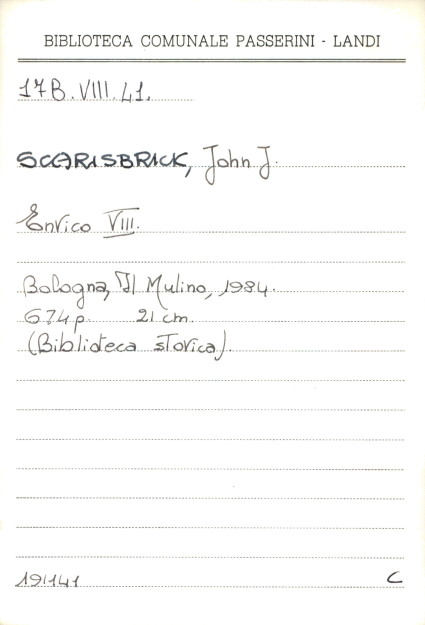 BIBLIOTECA COMUNALE PASSERINI - LANDI
17B.VIII.41.
SCARISBRICK, John J.
Enrico VIII.
Bologna, Il Mulino, 1984.
674 p. 21 cm.
(Biblioteca storica).
191141 C